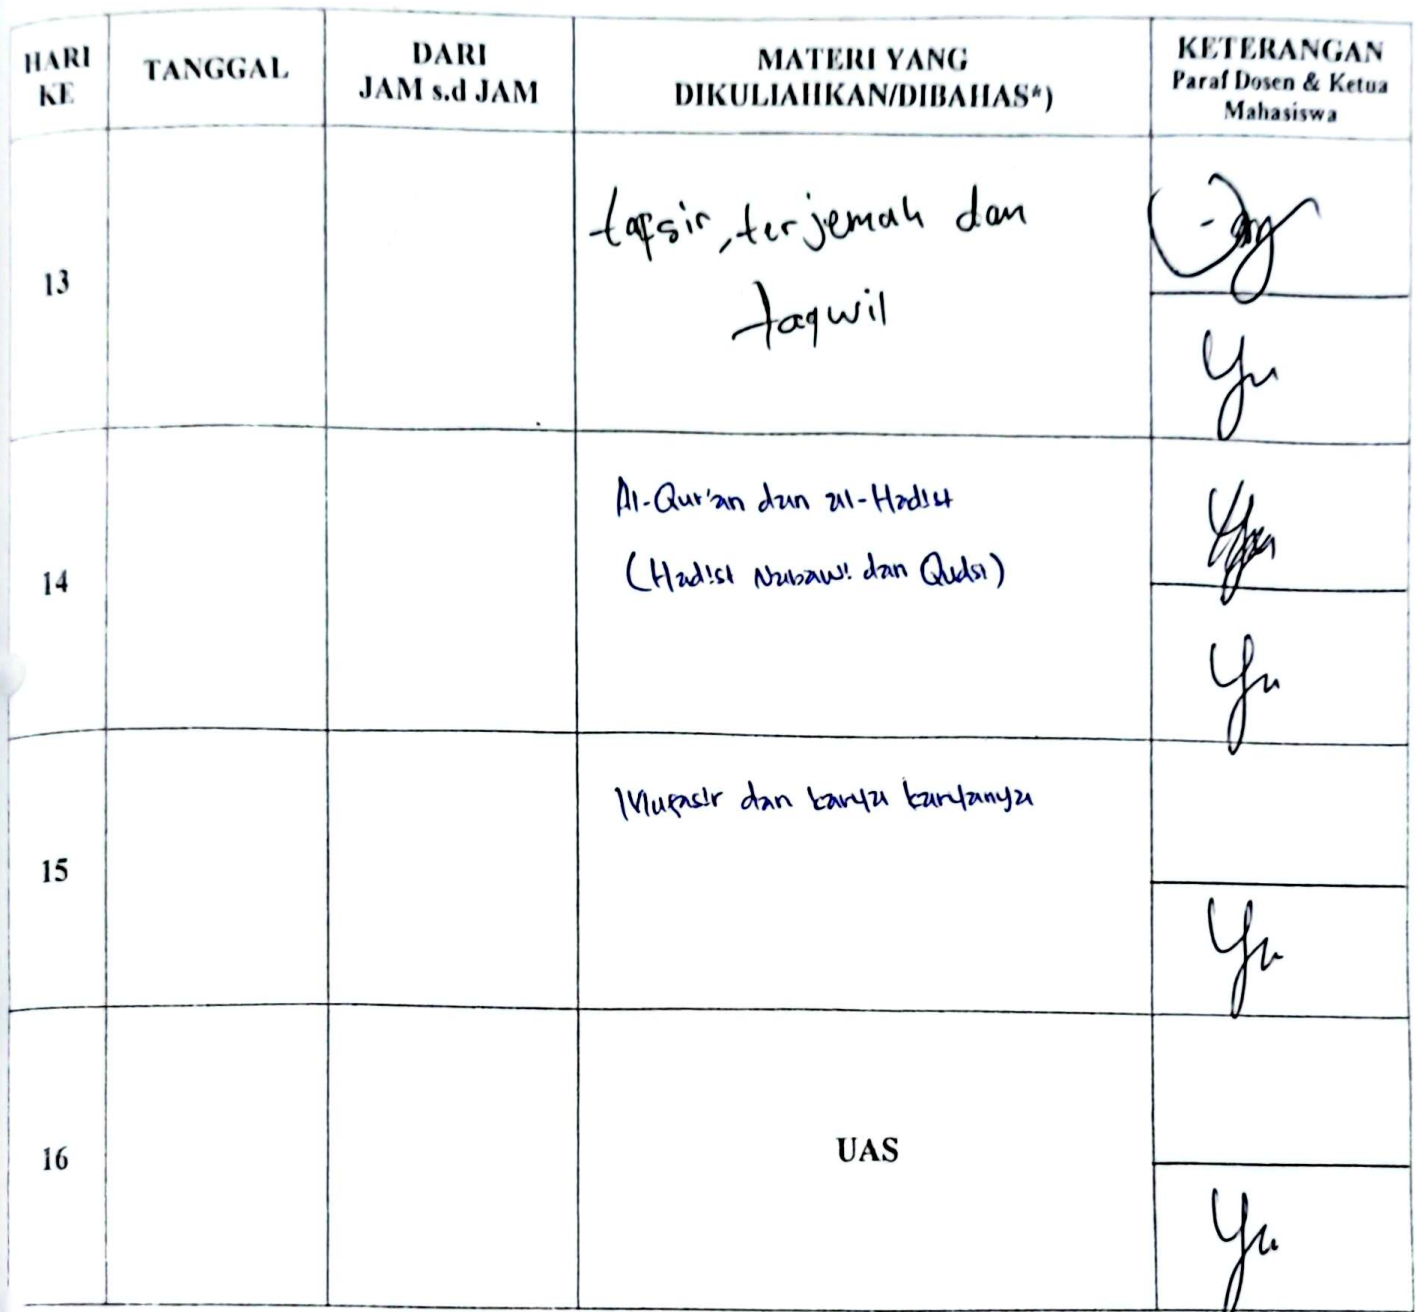 HARI KE
TANGGAL
DARI
JAM s.d JAM
MATERI YANG
DIKULIAHKAN/DIBAHAS*)
KETERANGAN
Paraf Dosen & Ketua
Mahasiswa
13
tafsir, terjemah dan
taqwil
14
Al-Qur'an dan al-Hadist
(Hadist Nabawi dan Qudsi)
15
Mufasir dan karya karyanya
16
UAS